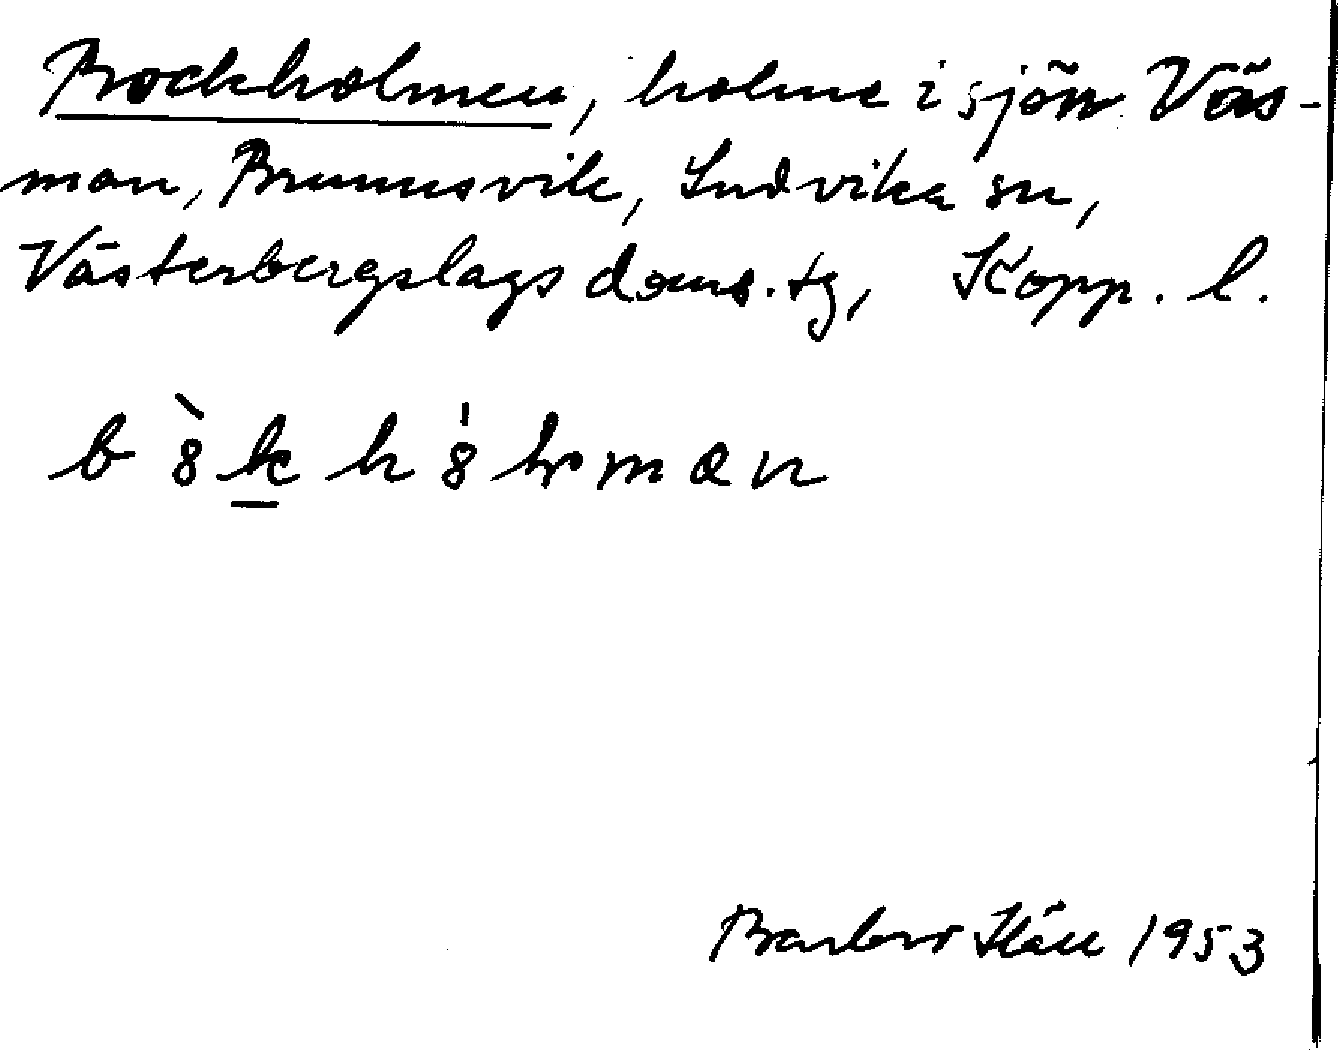 Bockholmen, holme i sjön Väs-
man, Brunnsvik, Ludvika sn,
Västerbergslags doms.tg, Kopp. l.
b 8̀ k̲ h 8̍ lr m a n
Barbro Häll 1953